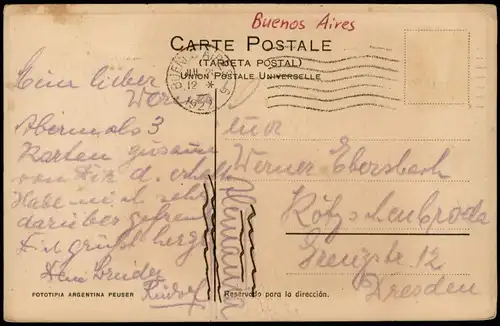 Buenos Aires
CARTE POSTALE
(TARJETA POSTAL)
UNION POSTALE UNIVERSELLE
BUENOS AIRES
12
192
Mein lieber
Abermals 3
Karten zusammen
von Dir d. erhalten
Habe mich sehr
darüber gefreut
Dich grüßt herzl.
Dein Bruder
Rudolf
Werner Ebersbach
Kötzschenbroda
Grenzstr. 12
Dresden
Alemania
FOTOTIPIA ARGENTINA PEUSER
Reservado para la dirección.